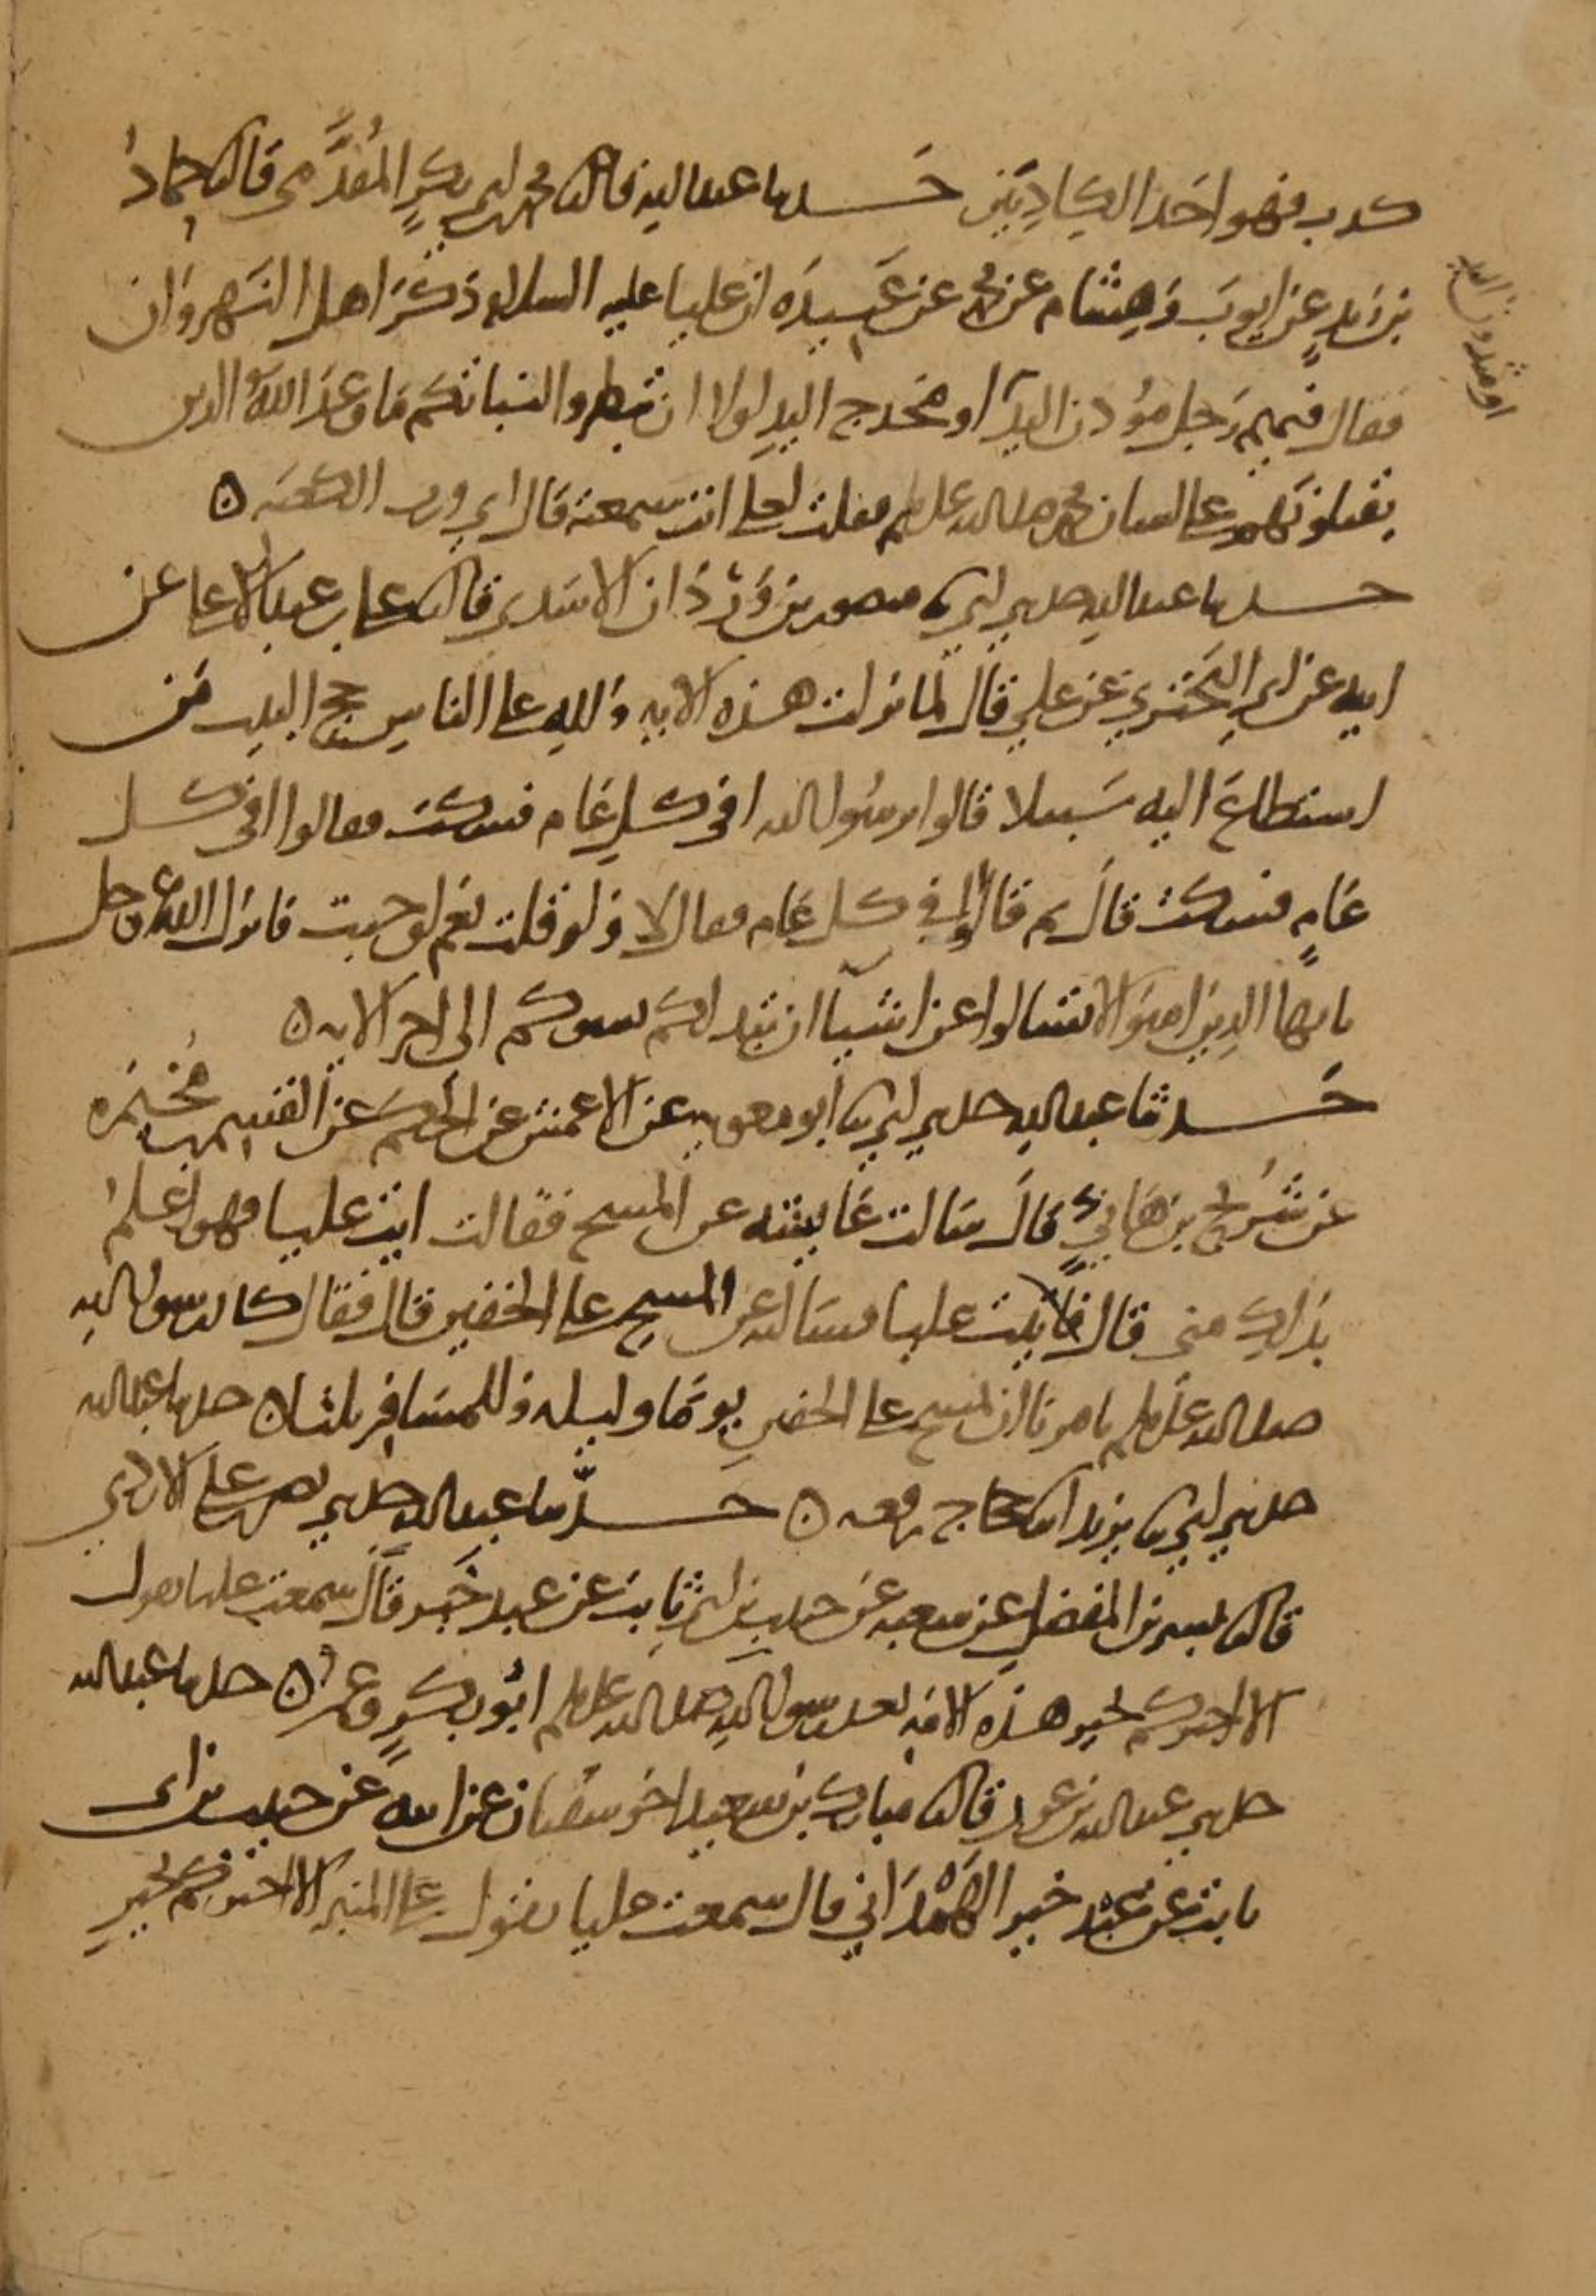 كذب فهو احد الكاذبين حدثنا عبد الله قال ثنا محمد بن ابي بكر المقدمي قال ثنا حماد
بن زيد عن ايوب وهشام عن محمد عن عبيدة ان عليا عليه السلام ذكر اهل النهروان
فقال فيهم رجل مودن اليد او مخدج اليد لولا ان تبطروا لنباتكم ما وعد الله الذين
او مثدون اليد
يقتلونهم على لسان محمد صلى الله عليه وسلم فقلت لعلي انت سمعته قال اي ورب الكعبة ه
حدثنا عبد الله حدثني ابي ثنا منصور بن وردان الاسدي قال ثنا علي بن عبد الاعلى عن
ابيه عن ابي البختري عن علي قال لما نزلت هذه الاية ولله على الناس حج البيت من
استطاع اليه سبيلا قالوا يرسول الله افي كل عام فسكت فقالوا افي كل
عام فسكت قال ثم قالوا افي كل عام فقال لا ولو قلت نعم لوجبت فانزل الله عز وجل
يايها الذين امنوا لا تسالوا عن اشيا ان تبد لكم تسوكم الى اخر الاية ه
حدثنا عبد الله حدثني ابي ثنا ابو معوية عن الاعمش عن الحكم عن القسم بن مخيمرة
عن شريح بن هاني قال سالت عايشة عن المسح فقالت ايت عليا فهو اعلم
بذلك مني قال فاتيت عليا فسالته عن المسح على الخفين قال فقال كان رسول الله
صلى الله عليه وسلم يامرنا ان نمسح على الخفين يوما وليلة وللمسافر ثلثا ه حدثنا عبد الله
حدثني ابي ثنا يزيد انا حجاج رفعه ه حدثنا عبد الله حدثني نصر بن علي الازدي
قال ثنا بشر بن المفضل عن شعبة عن حبيب بن ابي ثابت عن عبد خير قال سمعت عليا يقول
الا اخبركم بخير هذه الامة بعد رسول الله صلى الله عليه وسلم ابو بكر وعمر ه حدثنا عبد الله
حدثني عبد الله بن عون قال ثنا مبارك بن سعيد اخو سفيان عن ابيه عن حبيب بن ابي
ثابت عن عبد خير الهمداني قال سمعت عليا يقول على المنبر الا اخبركم بخير